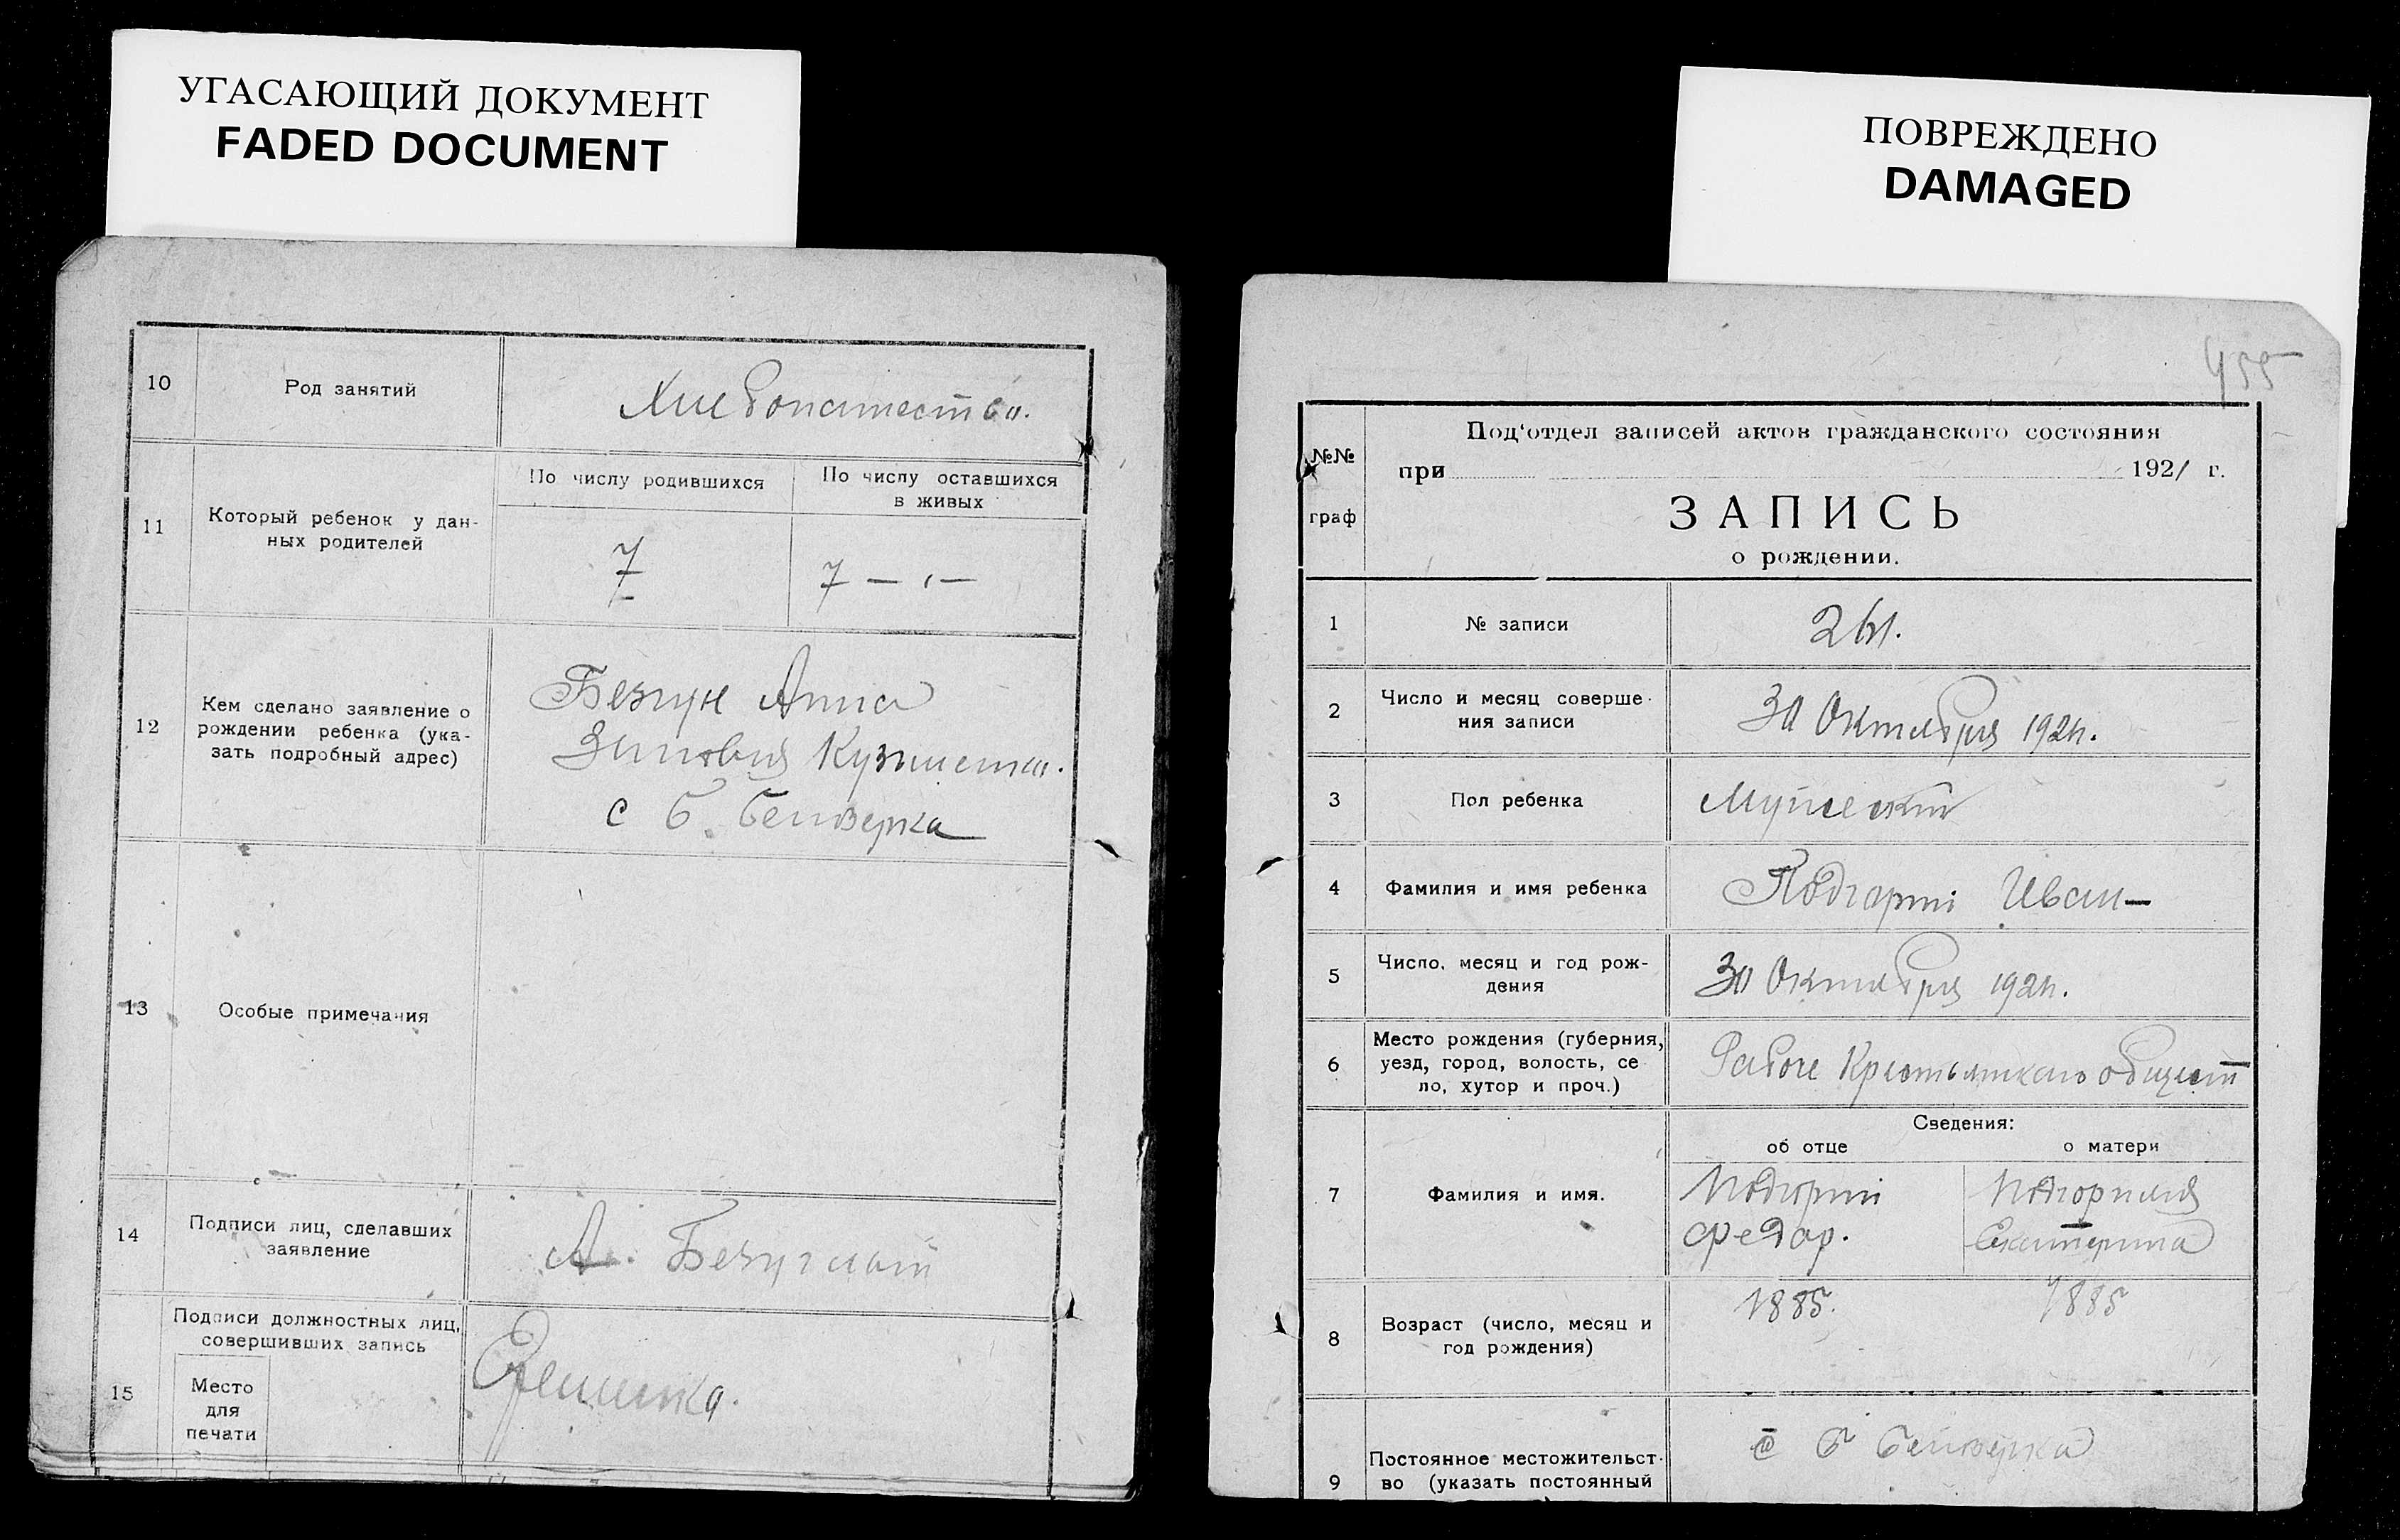 УГАСАЮЩИЙ ДОКУМЕНТ
FADED DOCUMENT
10
Род занятий
Хлебопашество.
11
Который ребенок у дан-
ных родителей
По числу родившихся
По числу оставшихся
в живых
7
7 —
12
Кем сделано заявление о
рождении ребенка (ука-
зать подробный адрес)
с Б. Белозерка
13
Особые примечания
14
Подписи лиц, сделавших
заявление
А. Безуглый
15
Подписи должностных лиц,
совершивших запись
Место
для
печати
ПОВРЕЖДЕНО
DAMAGED
455
№№
граф
Под'отдел записей актов гражданского состояния
при 1921 г.
ЗАПИСЬ
о рождении.
1
№ записи
2
Число и месяц соверше-
ния записи
30 Октября
3
Пол ребенка
Мужеский
4
Фамилия и имя ребенка
Иван
5
Число, месяц и год рож-
дения
30 Октября
6
Место рождения (губерния,
уезд, город, волость, се
ло, хутор и проч.)
Сведения:
об отце
о матери
7
Фамилия и имя.
Федор.
Екатерина
8
Возраст (число, месяц и
год рождения)
1885.
1885
9
Постоянное местожительст-
во (указать постоянный
с Б Белозерка